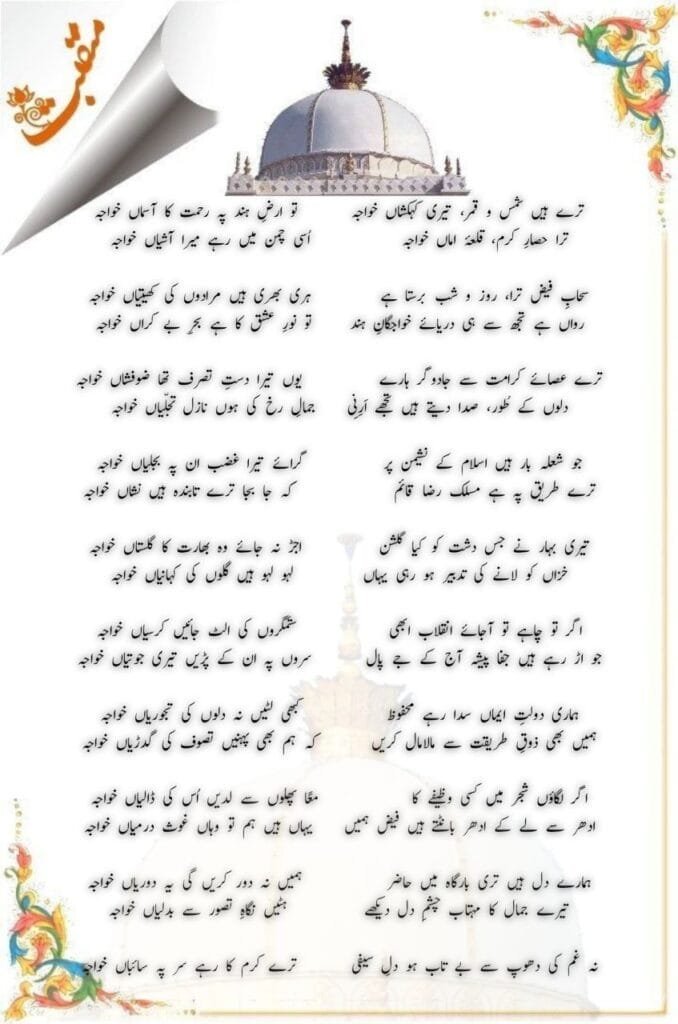 منقبت
ترے ہیں شمس و قمر، تیری کہکشاں خواجہ تو ارضِ ہند پہ رحمت کا آسماں خواجہ
ترا حصارِ کرم، قلعۂ اماں خواجہ اُسی چمن میں رہے میرا آشیاں خواجہ
سحابِ فیض ترا، روز و شب برستا ہے ہری بھری ہیں مرادوں کی کھیتیاں خواجہ
رواں ہے تجھ سے ہی دریائے خواجگانِ ہند تو نورِ عشق کا ہے بحرِ بے کراں خواجہ
ترے عصائے کرامت سے جادوگر ہارے یوں تیرا دستِ تصرف تھا ضوفشاں خواجہ
دلوں کے طُور، صدا دیتے ہیں تجھے اَرِنِی جمالِ رخ کی ہوں نازل تجلّیاں خواجہ
جو شعلہ بار ہیں اسلام کے نشیمن پر گرائے تیرا غضب ان پہ بجلیاں خواجہ
ترے طریق پہ ہے مسلک رضا قائم کہ جا بجا ترے تابندہ ہیں نشاں خواجہ
تیری بہار نے جس دشت کو کیا گلشن اجڑ نہ جائے وہ بھارت کا گلستاں خواجہ
خزاں کو لانے کی تدبیر ہو رہی یہاں لہو لہو ہیں گلوں کی کہانیاں خواجہ
اگر تو چاہے تو آجائے انقلاب ابھی ستمگروں کی الٹ جائیں کرسیاں خواجہ
جو اڑ رہے ہیں جفا پیشہ آج کے جے پال سروں پہ ان کے پڑیں تیری جوتیاں خواجہ
ہماری دولتِ ایماں سدا رہے محفوظ کبھی لٹیں نہ دلوں کی تجوریاں خواجہ
ہمیں بھی ذوقِ طریقت سے مالامال کریں کہ ہم بھی پہنیں تصوف کی گدڑیاں خواجہ
اگر لگاؤں شجر میں کسی وظیفے کا معًا پھلوں سے لدیں اُس کی ڈالیاں خواجہ
ادھر سے لے کے ادھر بانٹتے ہیں فیض ہمیں یہاں ہیں ہم تو وہاں غوث درمیاں خواجہ
ہمارے دل ہیں تری بارگاہ میں حاضر ہمیں نہ دور کریں گی یہ دوریاں خواجہ
تیرے جمال کا مہتاب چشمِ دل دیکھے ہٹیں نگاہِ تصور سے بدلیاں خواجہ
نہ غم کی دھوپ سے بے تاب ہو دلِ سیفی ترے کرم کا رہے سر پہ سائباں خواجہ